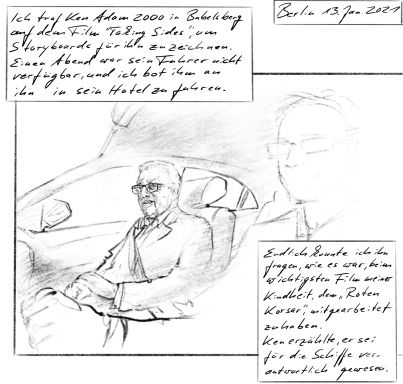 Berlin 13. Jan. 2021
Ich traf Ken Adam 2000 in Babelsberg
auf dem Film "Taking Sides", um
Storyboards für ihn zu zeichnen.
Einen Abend war sein Fahrer nicht
verfügbar, und ich bot ihm an
ihn in sein Hotel zu fahren.
Endlich konnte ich ihn
fragen, wie es war, beim
wichtigsten Film meiner
Kindheit, dem „Roten
Korsar“, mitgearbeitet
zu haben.
Ken erzählte, er sei
für die Schiffe ver-
antwortlich gewesen.